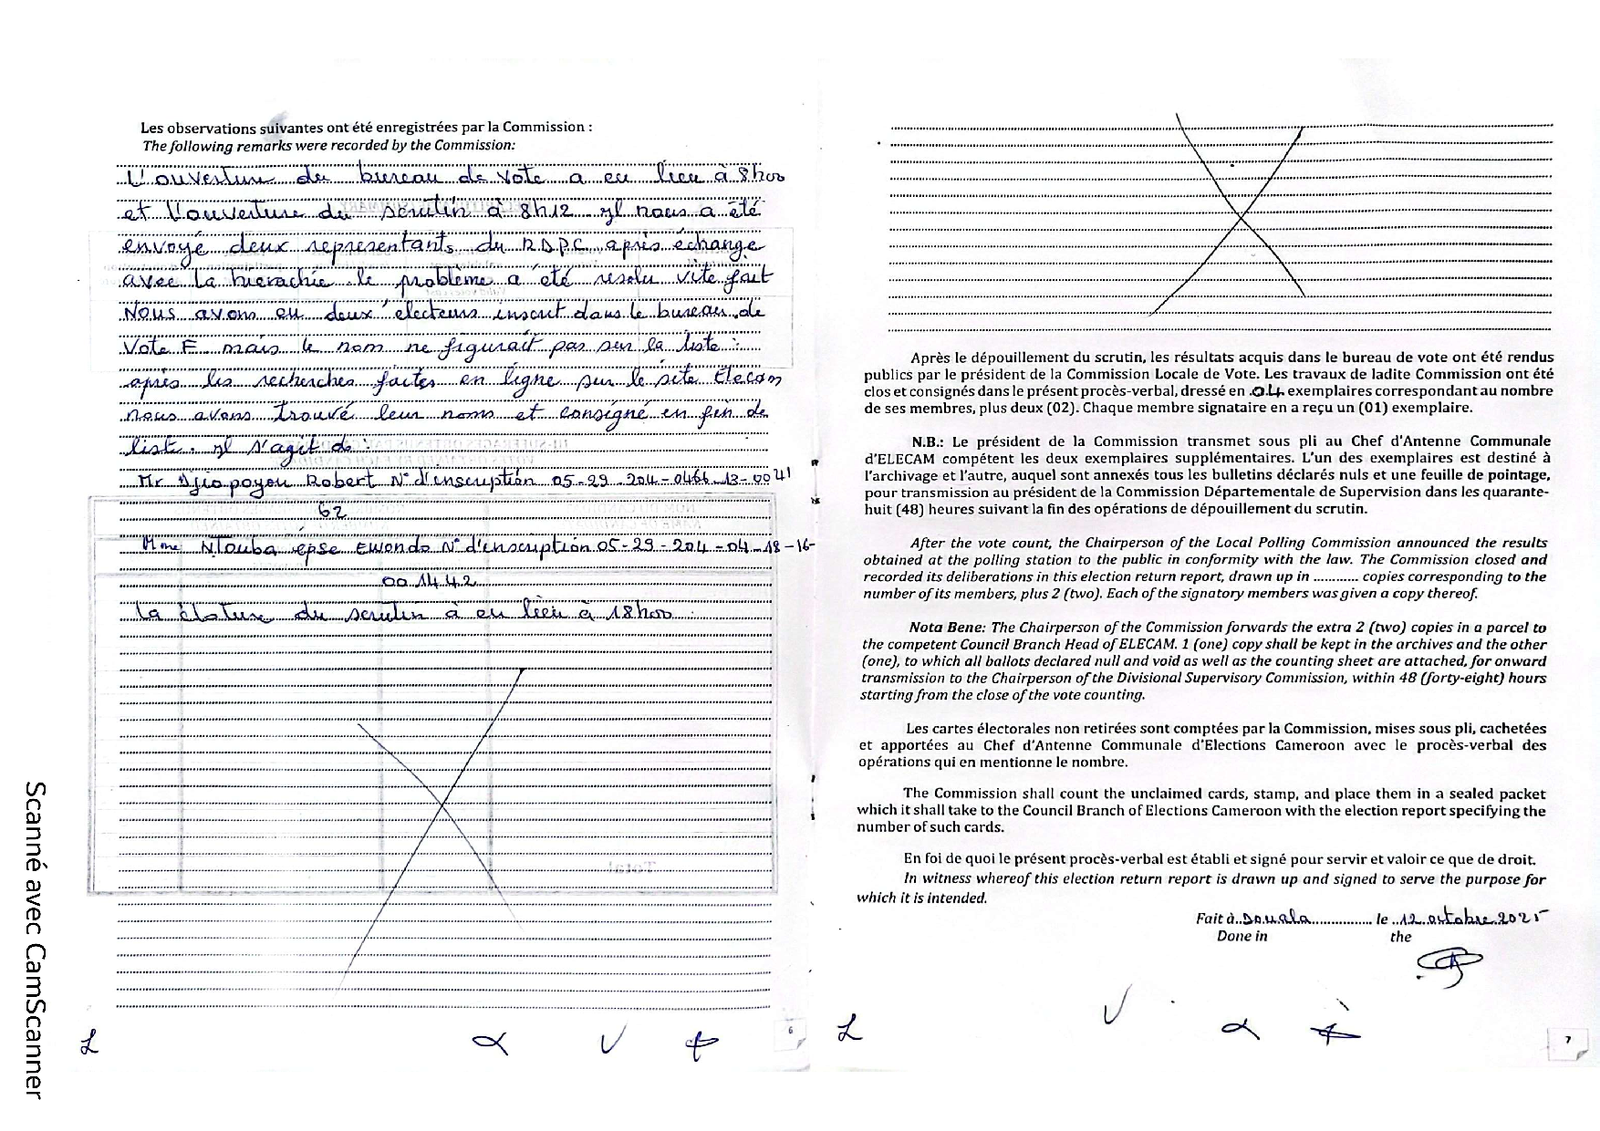 Les observations suivantes ont été enregistrées par la Commission :
The following remarks were recorded by the Commission:
L'ouverture du bureau de vote a eu lieu à 8h00
et l'ouverture du scrutin à 8h12 yl nous a été
envoyé deux representants du RDPC après échange
avec la hierachie le problème a été resolu vite fait
Nous avons eu deux électeurs inscrit dans le bureau de
Vote F mais le nom ne figurait pas sur la liste :
après les recherches faites en ligne sur le site Elecam
nous avons trouvé leur noms et consigné en fin de
liste. yl s'agit de :
Mr Djiopoyou Robert N° d'inscription 05-29-204-0466-13-0041
62
Mme NTouba épse Ewondo N° d'inscription 05-29-204-04-18-16-
001442
La cloture du scrutin à eu lieu à 18h00
6
Après le dépouillement du scrutin, les résultats acquis dans le bureau de vote ont été rendus
publics par le président de la Commission Locale de Vote. Les travaux de ladite Commission ont été
clos et consignés dans le présent procès-verbal, dressé en 04 exemplaires correspondant au nombre
de ses membres, plus deux (02). Chaque membre signataire en a reçu un (01) exemplaire.
N.B.: Le président de la Commission transmet sous pli au Chef d'Antenne Communale
d'ELECAM compétent les deux exemplaires supplémentaires. L'un des exemplaires est destiné à
l'archivage et l'autre, auquel sont annexés tous les bulletins déclarés nuls et une feuille de pointage,
pour transmission au président de la Commission Départementale de Supervision dans les quarante-
huit (48) heures suivant la fin des opérations de dépouillement du scrutin.
After the vote count, the Chairperson of the Local Polling Commission announced the results
obtained at the polling station to the public in conformity with the law. The Commission closed and
recorded its deliberations in this election return report, drawn up in ............ copies corresponding to the
number of its members, plus 2 (two). Each of the signatory members was given a copy thereof.
Nota Bene: The Chairperson of the Commission forwards the extra 2 (two) copies in a parcel to
the competent Council Branch Head of ELECAM. 1 (one) copy shall be kept in the archives and the other
(one), to which all ballots declared null and void as well as the counting sheet are attached, for onward
transmission to the Chairperson of the Divisional Supervisory Commission, within 48 (forty-eight) hours
starting from the close of the vote counting.
Les cartes électorales non retirées sont comptées par la Commission, mises sous pli, cachetées
et apportées au Chef d'Antenne Communale d'Elections Cameroon avec le procès-verbal des
opérations qui en mentionne le nombre.
The Commission shall count the unclaimed cards, stamp, and place them in a sealed packet
which it shall take to the Council Branch of Elections Cameroon with the election report specifying the
number of such cards.
En foi de quoi le présent procès-verbal est établi et signé pour servir et valoir ce que de droit.
In witness whereof this election return report is drawn up and signed to serve the purpose for
which it is intended.
Fait à Douala le 12 octobre 2025
Done in the
7
Scanné avec CamScanner